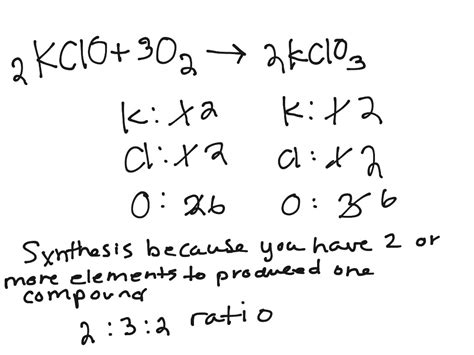 2 KClO + 3O2 → 2KClO3
K: 1 2 K: 1 2
Cl: 1 2 Cl: 1 2
O: 2 6 O: 3 6
Synthesis because you have 2 or
more elements to produced one
compound
2 : 3 : 2 ratio